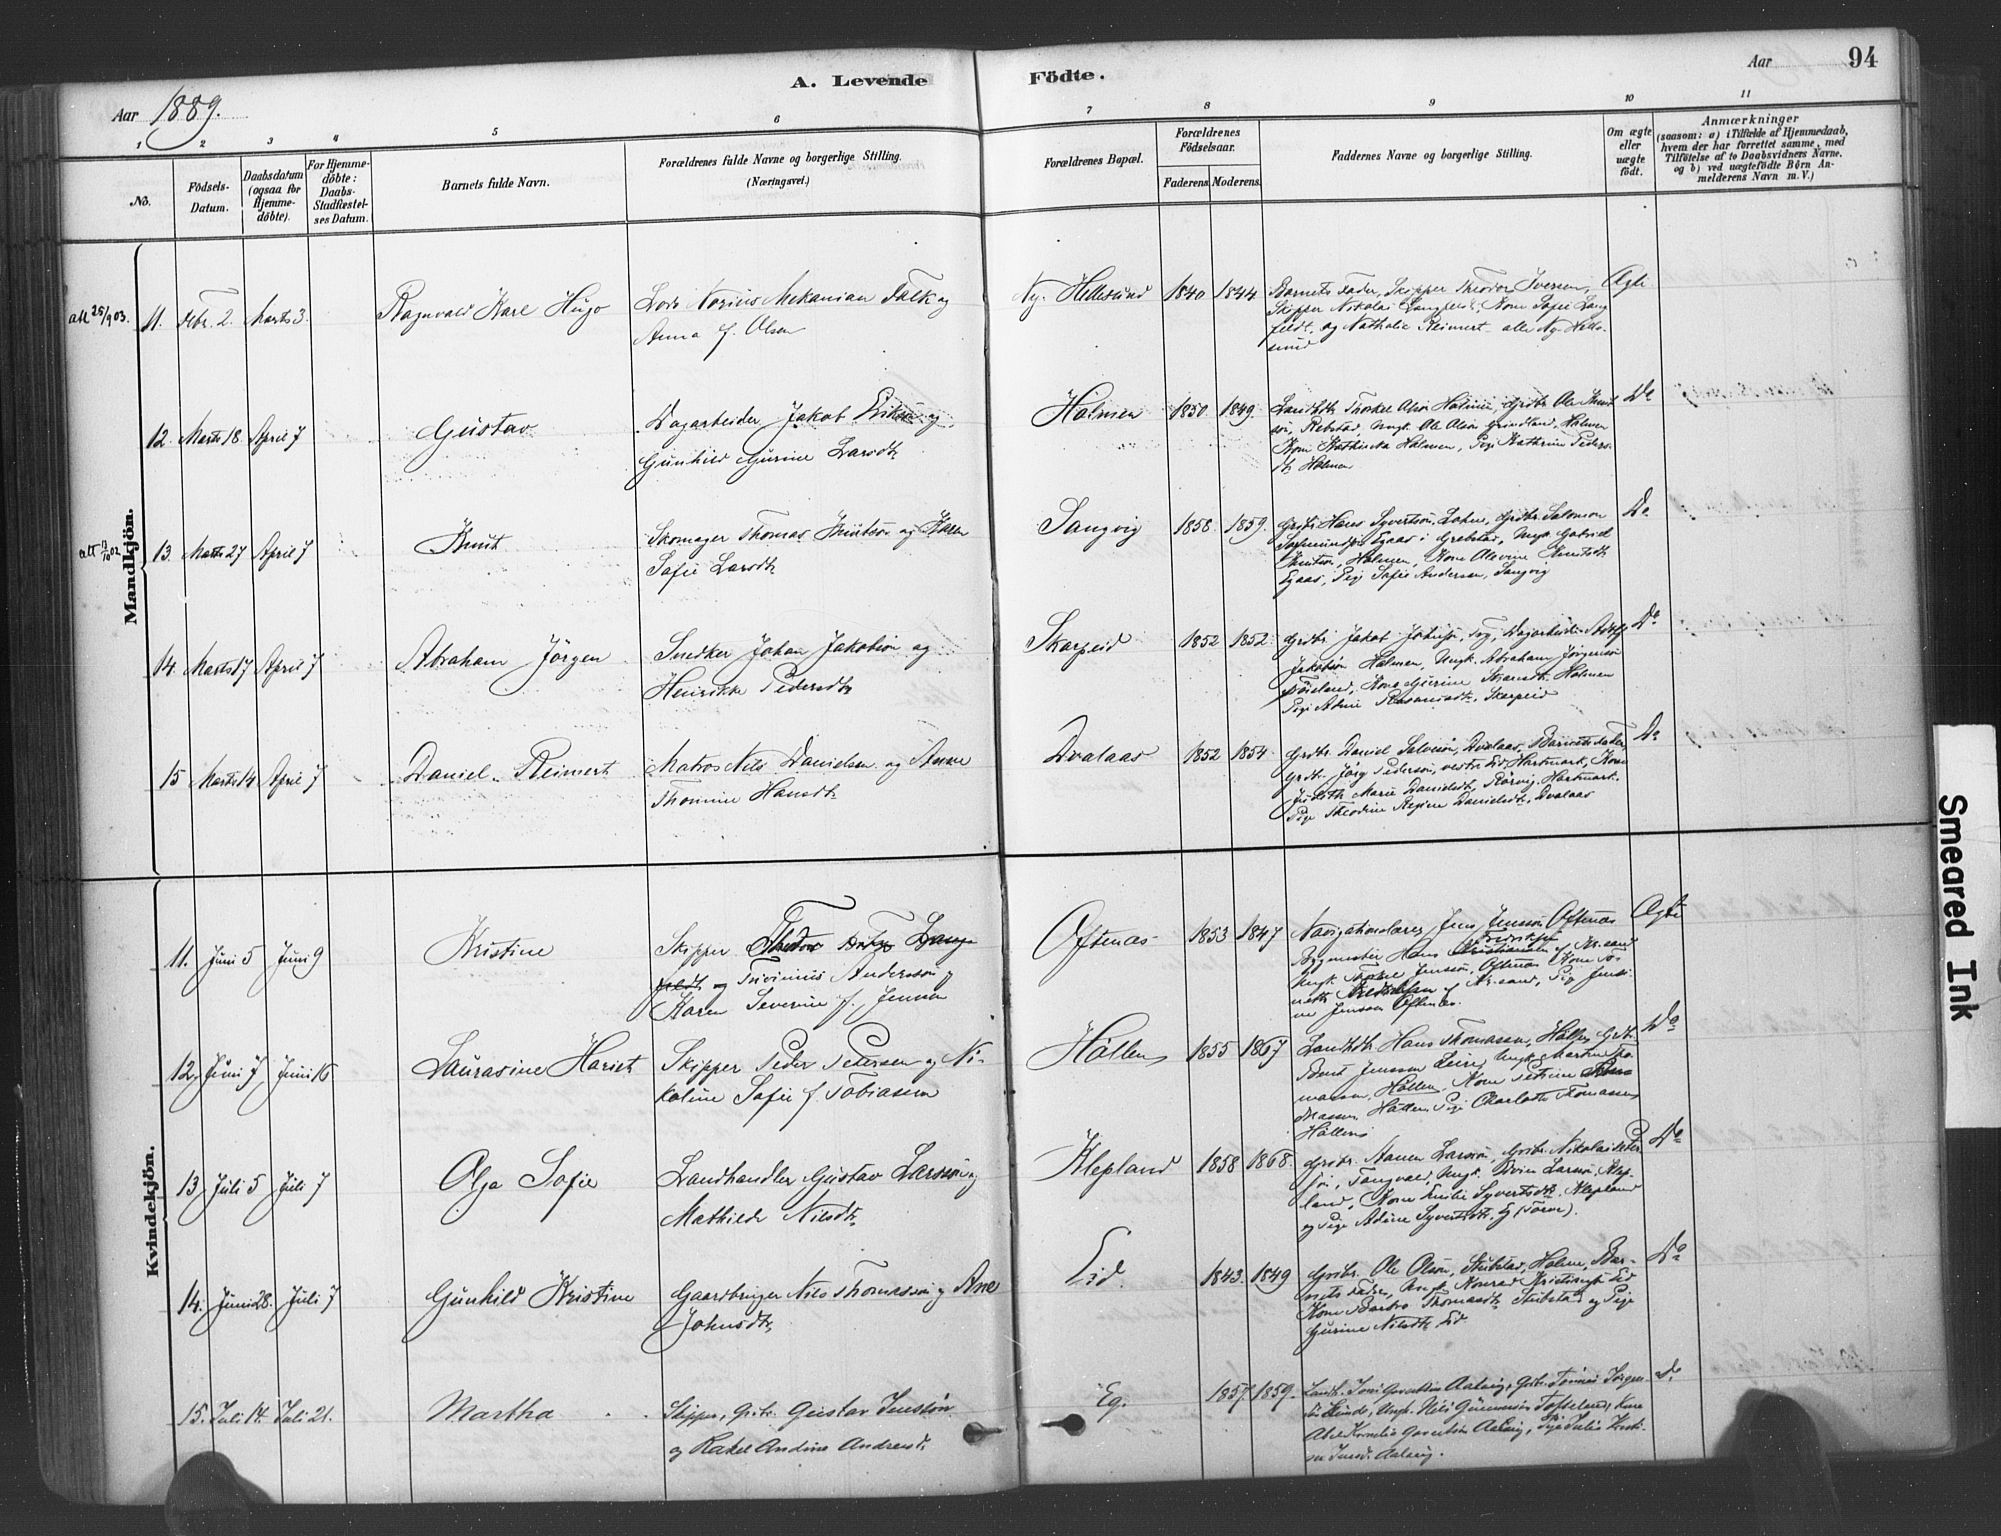 A. Levende Födte.
Aar 1889.
Aar 94
1 2 3 4 5 6 7 8 9 10 11
No.
Födsels-Datum.
Daabsdatum (ogsaa for Hjemme-döbte).
For Hjemme-döbte: Daabs-Stadfæstel-ses Datum.
Barnets fulde Navn.
Forældrenes fulde Navne og borgerlige Stilling.
(Næringsvei.)
Forældrenes Bopæl.
Forældrenes Födselsaar.
Faderens. Moderens.
Faddernes Navne og borgerlige Stilling.
Om ægte eller uægte födt.
Anmærkninger
(saasom: a) i Tilfælde af Hjemmedaab,
hvem der har forrettet samme, med
Tilföielse af to Daabsvidners Navne.
og b) ved uægtefödte Börn An-
melderens Navn m. V.)
Mandkjön.
att 25/9 03. 11. Febr. 2. Marts 3. Ragnvald Karl Hugo
Lods Anna f. Olsen
Ny-Hellesund 1840 1844
Barnets Fader, Skipper Theodor Iversen,
Skipper Nikolai Langfeldt, Kone Sofie Lang
feldt, og Nathalie Reimert alle Ny-Helle-
sund
Ægte
12. Marts 18. April 7 Gustav
Dagarbeider Jakob Eriksen og
Gunhild Gurine Larsdtr
Holmen 1850 1849
Landhdlr Thorkel Olsen Holmen, Grdbr. Ole Knut
sön, Rebstad, Ungk. Ole Olsen Grindland, Holmen
Kone Kathinka Holmen, Pige Kathrine Peders-
dtr Holmen
Do
13. Marts 27 April 7 Knut
Skomager Thomas Knutsön og Karen
Sofie Larsdtr
Sangvig 1858 1859
Grdbr. Hans Syvertsön, Lohne, Grdbr. Salomon
Egaas i Grebstad, Ungk. Gabriel
Knutsön, Holmen, Kone Olevine Knutsdtr
Egaas, Pige Sofie Andersen, Sangvig
Do
14. Marts 17 April 7 Abraham Jörgen
Snedker Johan Jakobsön og
Henrikke Pedersdtr
Skarpeid 1852 1852
Grdbr. Jakob Dagarbeider Adolf
Jakobsön Holmen, Ungk. Abraham Jörgensön
Kone Gurine Holmen
Pige Skarpeid
Do
15 Marts 14 April 7 Daniel Reimert
Matros Nils Danielsen og Anne
Thomine Hansdtr
Dvalaas 1852 1854
Grdbr. Daniel Salvesön, Dvalaas, Barnets Fader,
Grdbr. Jörg. Pedersön, vestre Eid, Hartmark, Kone
Marie Danielsdtr, Rörvig, Hartmark.
Pige Theodine Regine Danielsdtr, Dvalaas
Do
Kvindekjön.
11. Juni 5 Juni 9 Kristine
Skipper Andersson og
Karen Severine f. Jensen
Oftenæs 1853 1847
Navigationslærer, Jens Jensson Oftenæs
Bygmester Hans Fredriksen Kr.sand
Ungk. Jensson, Oftenæs Kone
Kr.sand, Pige
Jensson Oftenæs.
Ægte
12. Juni 7 Juni 16 Laurasine Hariet
Skipper Peder Petersen og Ni-
koline Sofie f. Tobiassen
Höllen 1855 1867
Landhdlr. Hans Thomassen, Höllen, Grdbr.
Bent Jensson Leire, Ungk. Martin Tho
massen, Höllen, Kone Petrine
Höllen, Pige Charlotte Thomassen
Höllen
Do
13 Juli 5 Juli 7 Olga Sofie
Landhandler Gustav Larssön og
Mathilde Nilsdtr
Klepland 1858 1868.
Grdbr. Aanen Larssön, Grdbr. Nikolai Peter
sön, Tangvald, Ungk. Larssön, Klep-
land, Kone Emilie Syvertsdtr. Klepland
og Pige Adine Syvertsdtr. Eg (Torve).
Do
14. Juni 28. Juli 7 Gunhild Kristine
Gaardbruger Nils Thomassön og Ane
Johnsdtr
Eid. 1843. 1849
Grdbr. Ole Olsön, Stubstad, Holme, Bar-
nets Fader, Ungk. Konrad Kristiansen Eid
Kone Barbro Thomasdtr Stubstad og Pige
Gurine Nilsdtr Eid
Do
15. Juli 14. Juli 21. Martha
Skipper, Grdbr. Gustav Jensson
og Rakel Andine Andreasdtr
Eg. 1857. 1859.
Aalevig, Grdbr. Tönnes Jörgen-
sön Ungk. Nils Gunnarsön Kone
Abel Kornelia Aalevig, Pige Julie Kristi-
ne Aalevig.
Do
att 13/10 02
Smeared Ink